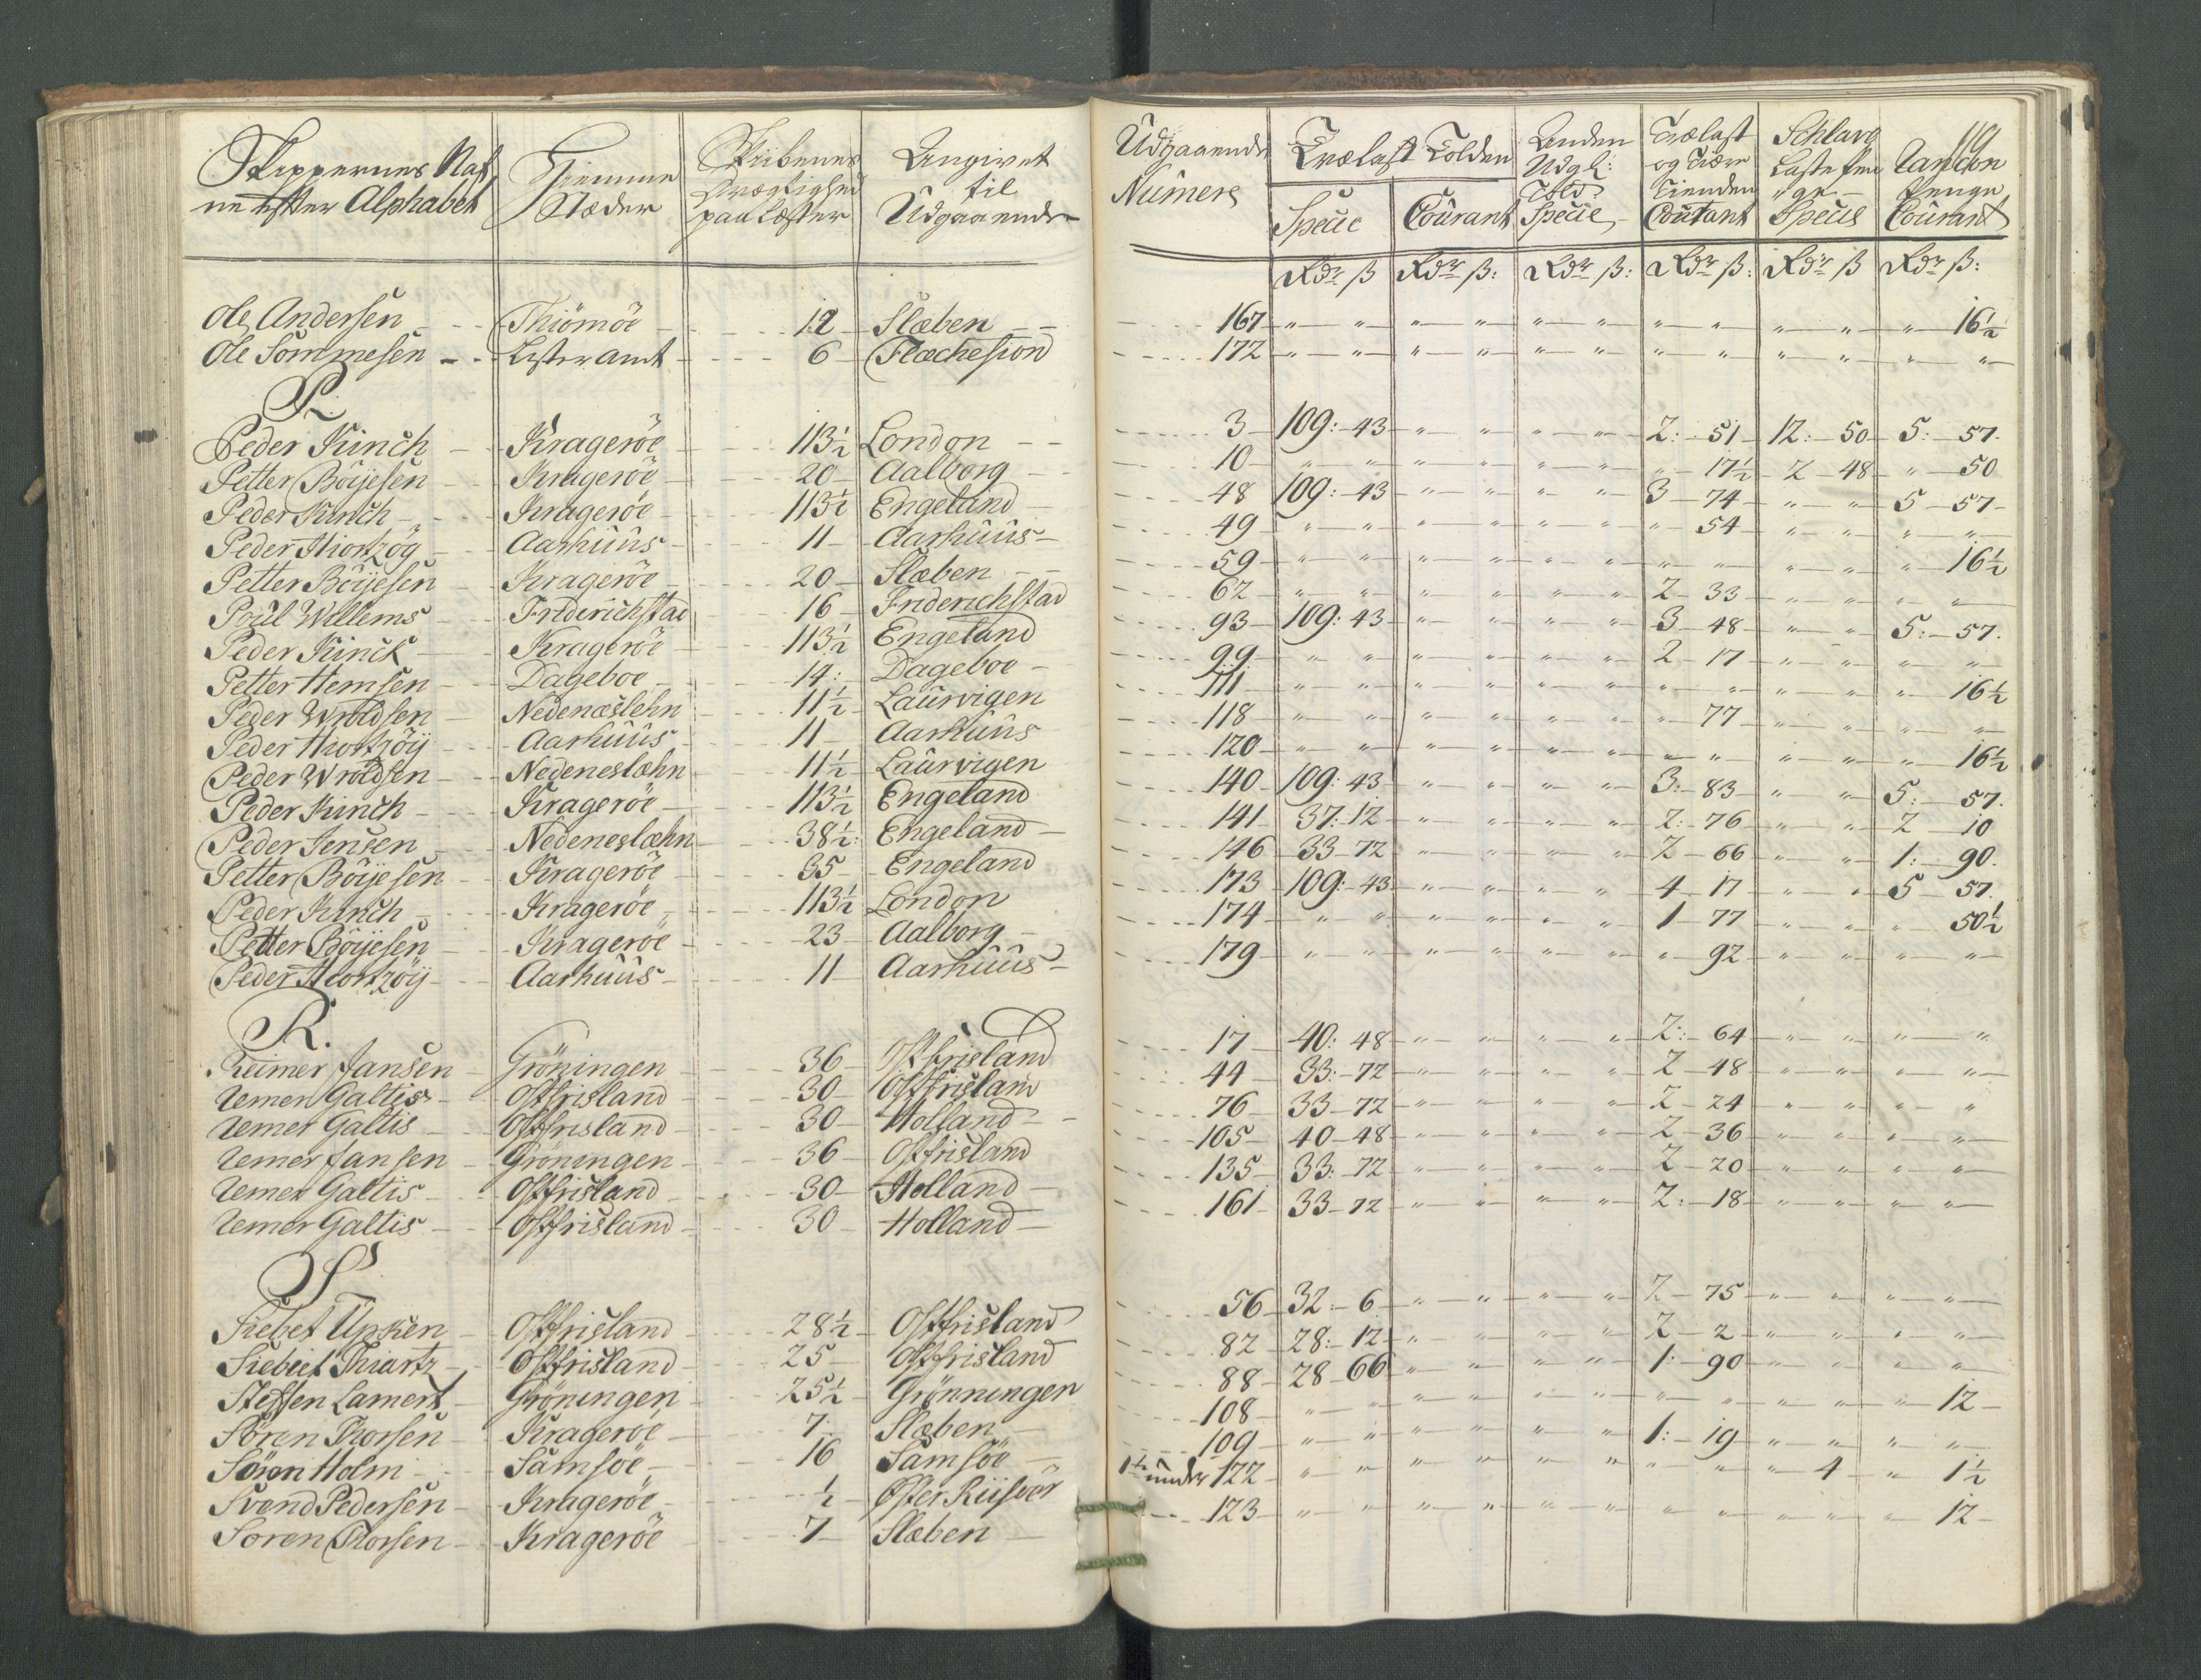 Skippernes Naf,
ne efter Alphabet
Hiemme
Stæder
Skibenes
Drægtighed
paa Læster
Angivet
til
Udgaaende
Udgaaende
Numere
Trælast Tolden
Specie
Courant
Anden
Udgl:
Told
Specie
Trælast
og Tiære
Tienden
Courant
Schlave
Laste Pen
ge
Specie
Rantzon
Penge
Courant
119
Rdr ß Rdr ß: Rdr ß: Rdr ß: Rdr ß Rdr ß:
Ole Andersen Thiömöe 12 Slæben 167 " " " " " " " " " " " 16½
Ole Sommesen Lister amt 6 Flæchefiord 172 " " " " " " " " " " " "
P.
Peder Kinch Krageröe 113½ London 3 109:43 " " " " 2:51 12:50 5:57
Petter Böijesen Krageröe 20 Aalborg 10 " " " " " " " 17½ 2 48 " 50
Peder Kinch Krageröe 113½ Engeland 48 109:43 " " " " 3 74 " " 5 57
Peder Hiortzög Aarhuus 11 Aarhuus 49 " " " " " " " 54 " " " "
Petter Böijesen Krageröe 20 Slæben 59 " " " " " " " " " " " 16½
Poul Willems Friderichstad 16 Friderichstad 62 " " " " " " 2 33 " " " "
Peder Kinck Krageröe 113½ Engeland 93 109:43 " " " " 3 48 " " 5:57
Petter Hemsen Dageboe 14: Dageboe 99 " " " " " " 2 17 " " " "
Peder Wroldsen Nedenæslehn 11½ Laurvigen 111 " " " " " " " " " " " 16½
Peder Hiortzöij Aarhuus 11 Aarhuus 118 " " " " " " " 77 " " " "
Peder Wroldsen Nedeneslæhn 11½ Laurvigen 120 " " " " " " " " " " " 16½
Peder Kinch Krageröe 113½ Engeland 140 109:43 " " " " 3:83 " " 5:57
Peder Jensen Nedeneslæhn 38½: Engeland 141 37:12 " " " " 2:76 " " 2 10
Petter Böijesen Krageröe 35 Engeland 146 33 72 " " " " 2 66 " " 1:90
Peder Kinch Krageröe 113½ London 173 109:43 " " " " 4 17 " " 5 57
Petter Böijesen Krageröe 23 Aalborg 174 " " " " " " 1 77 " " " 50½
Peder Hiortzöij Aarhuus 11 Aarhuus 179 " " " " " " " 92 " " " "
R.
Reimer Jansen Gröningen 36 Ostfrisland 17 40:48 " " " " 2:64 " " " "
Remer Galtis Ostfrisland 30 Ostfrisland 44 33:72 " " " " 2 48 " " " "
Remer Galtis Ostfrisland 30 Holland 76 33 72 " " " " 2 24 " " " "
Remer Jansen Groningen 36 Ostfrisland 105 40 48 " " " " 2 36 " " " "
Remer Galtis Ostfrisland 30 Holland 135 33:72 " " " " 2 20 " " " "
Remer Galtis Ostfrisland 30 Holland 161 33 72 " " " " 2:18 " " " "
S
Siebet Upken Ostfrisland 28½ Ostfrisland 56 32:6 " " " " 2 75 " " " "
Siebeet Thiartz Ostfrisland 25 Ostfrisland 82 28:12 " " " " 2 2 " " " "
Steffen Lamert Gröningen 25½ Grönningen 88 28 66 " " " " 1:90 " " " "
Sören Thorsen Krageröe 7 Slæben 108 " " " " " " " " " " " 12
Sören Holm Samsöe 16 Samsöe 109 " " " " " " 1:19 " " " "
Svend Pedersen Krageröe ½ Öster Riisöer 1½ under 122 " " " " " " " " " 4 " 1½
Soren Thorsen Krageröe 7 Slæben 123 " " " " " " " " " " " 12